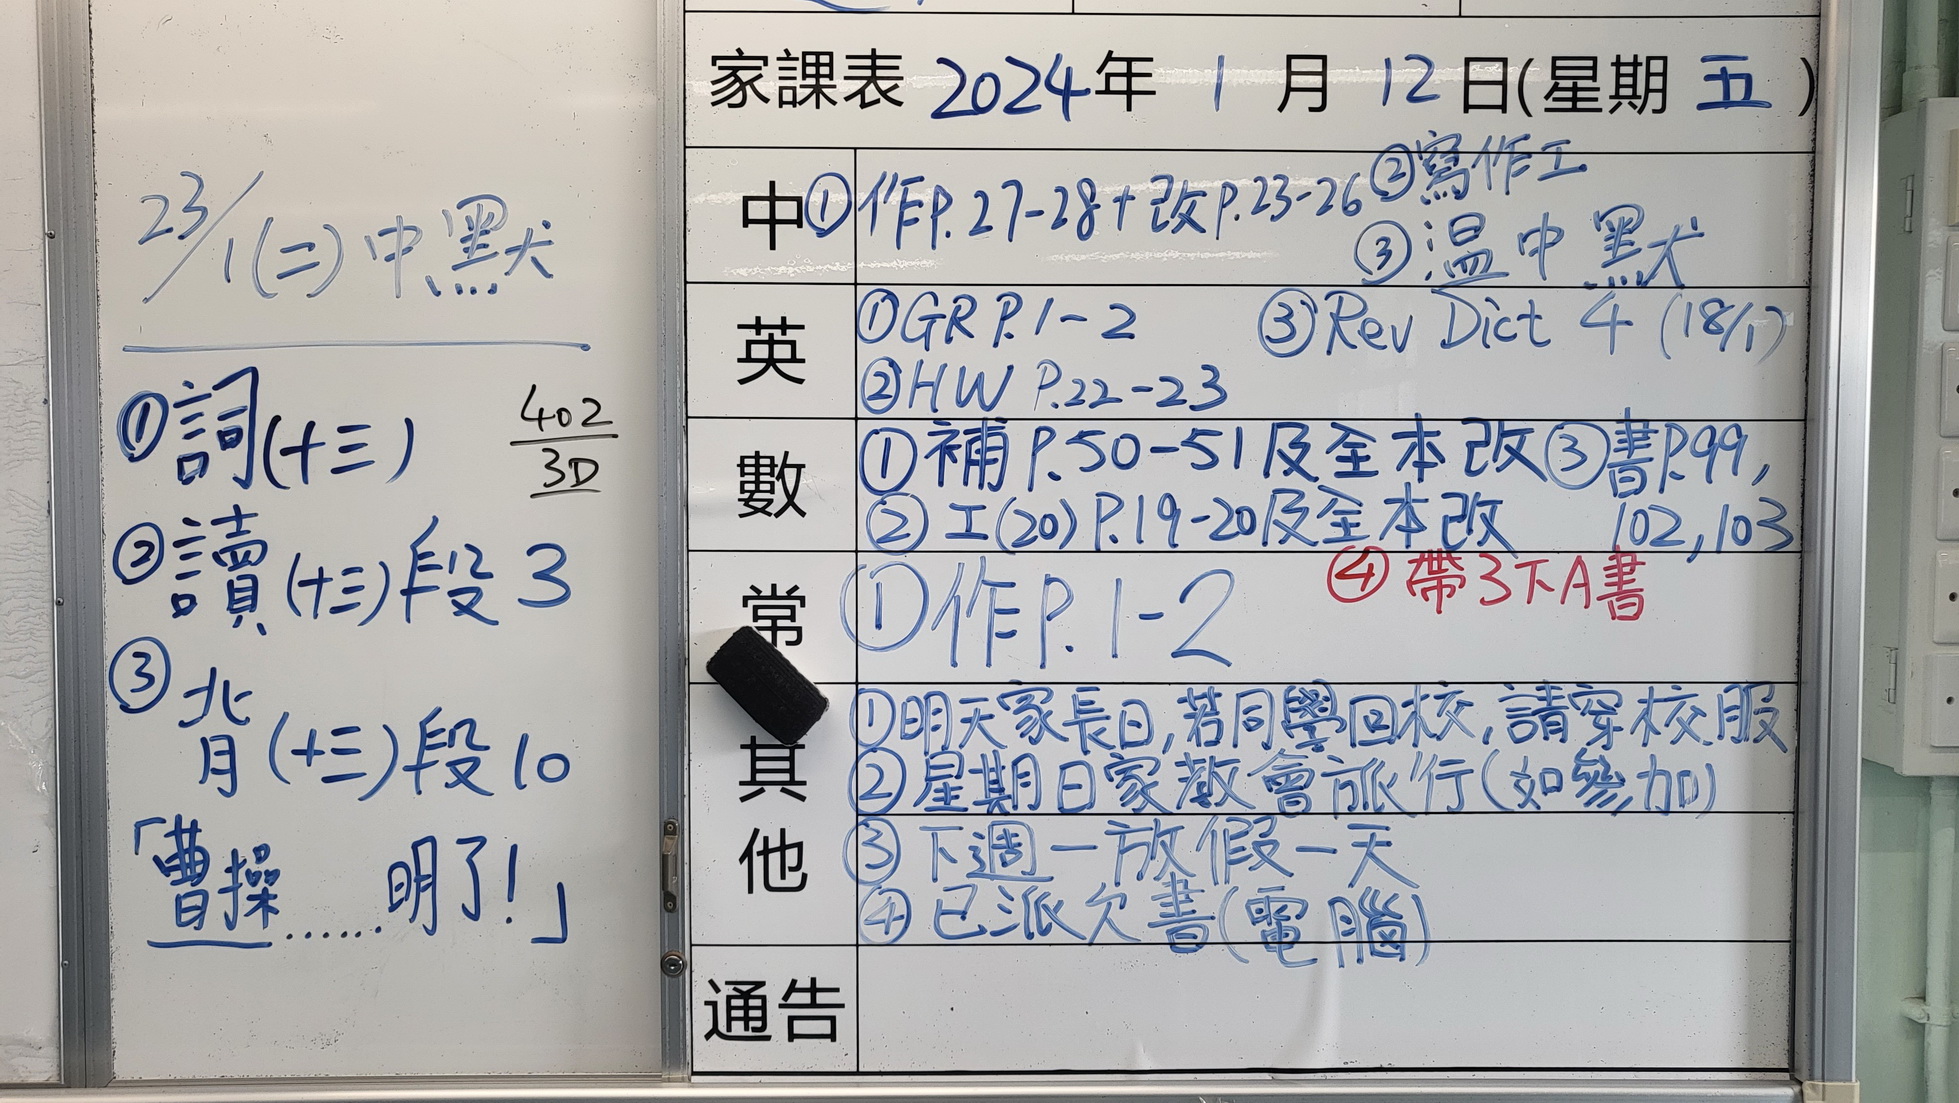 23/1(二)中默
①詞(十三)
402
3D
②讀(十三)段3
③背(十三)段10
「曹操……明了!」
家課表 2024年 1 月 12 日(星期 五 )
中 ①作P.27-28+改P.23-26 ②寫作工
③溫中默
英 ①GR P.1-2 ③Rev Dict 4 (18/1)
②HW P.22-23
數 ①補P.50-51及全本改 ③書P.99,
②工(20)P.19-20及全本改 102,103
常 ①作P.1-2 ④帶3下A書
其他 ①明天家長日,若同學回校,請穿校服
②星期日家教會旅行(如參加)
③下週一放假一天
④已派欠書(電腦)
通告